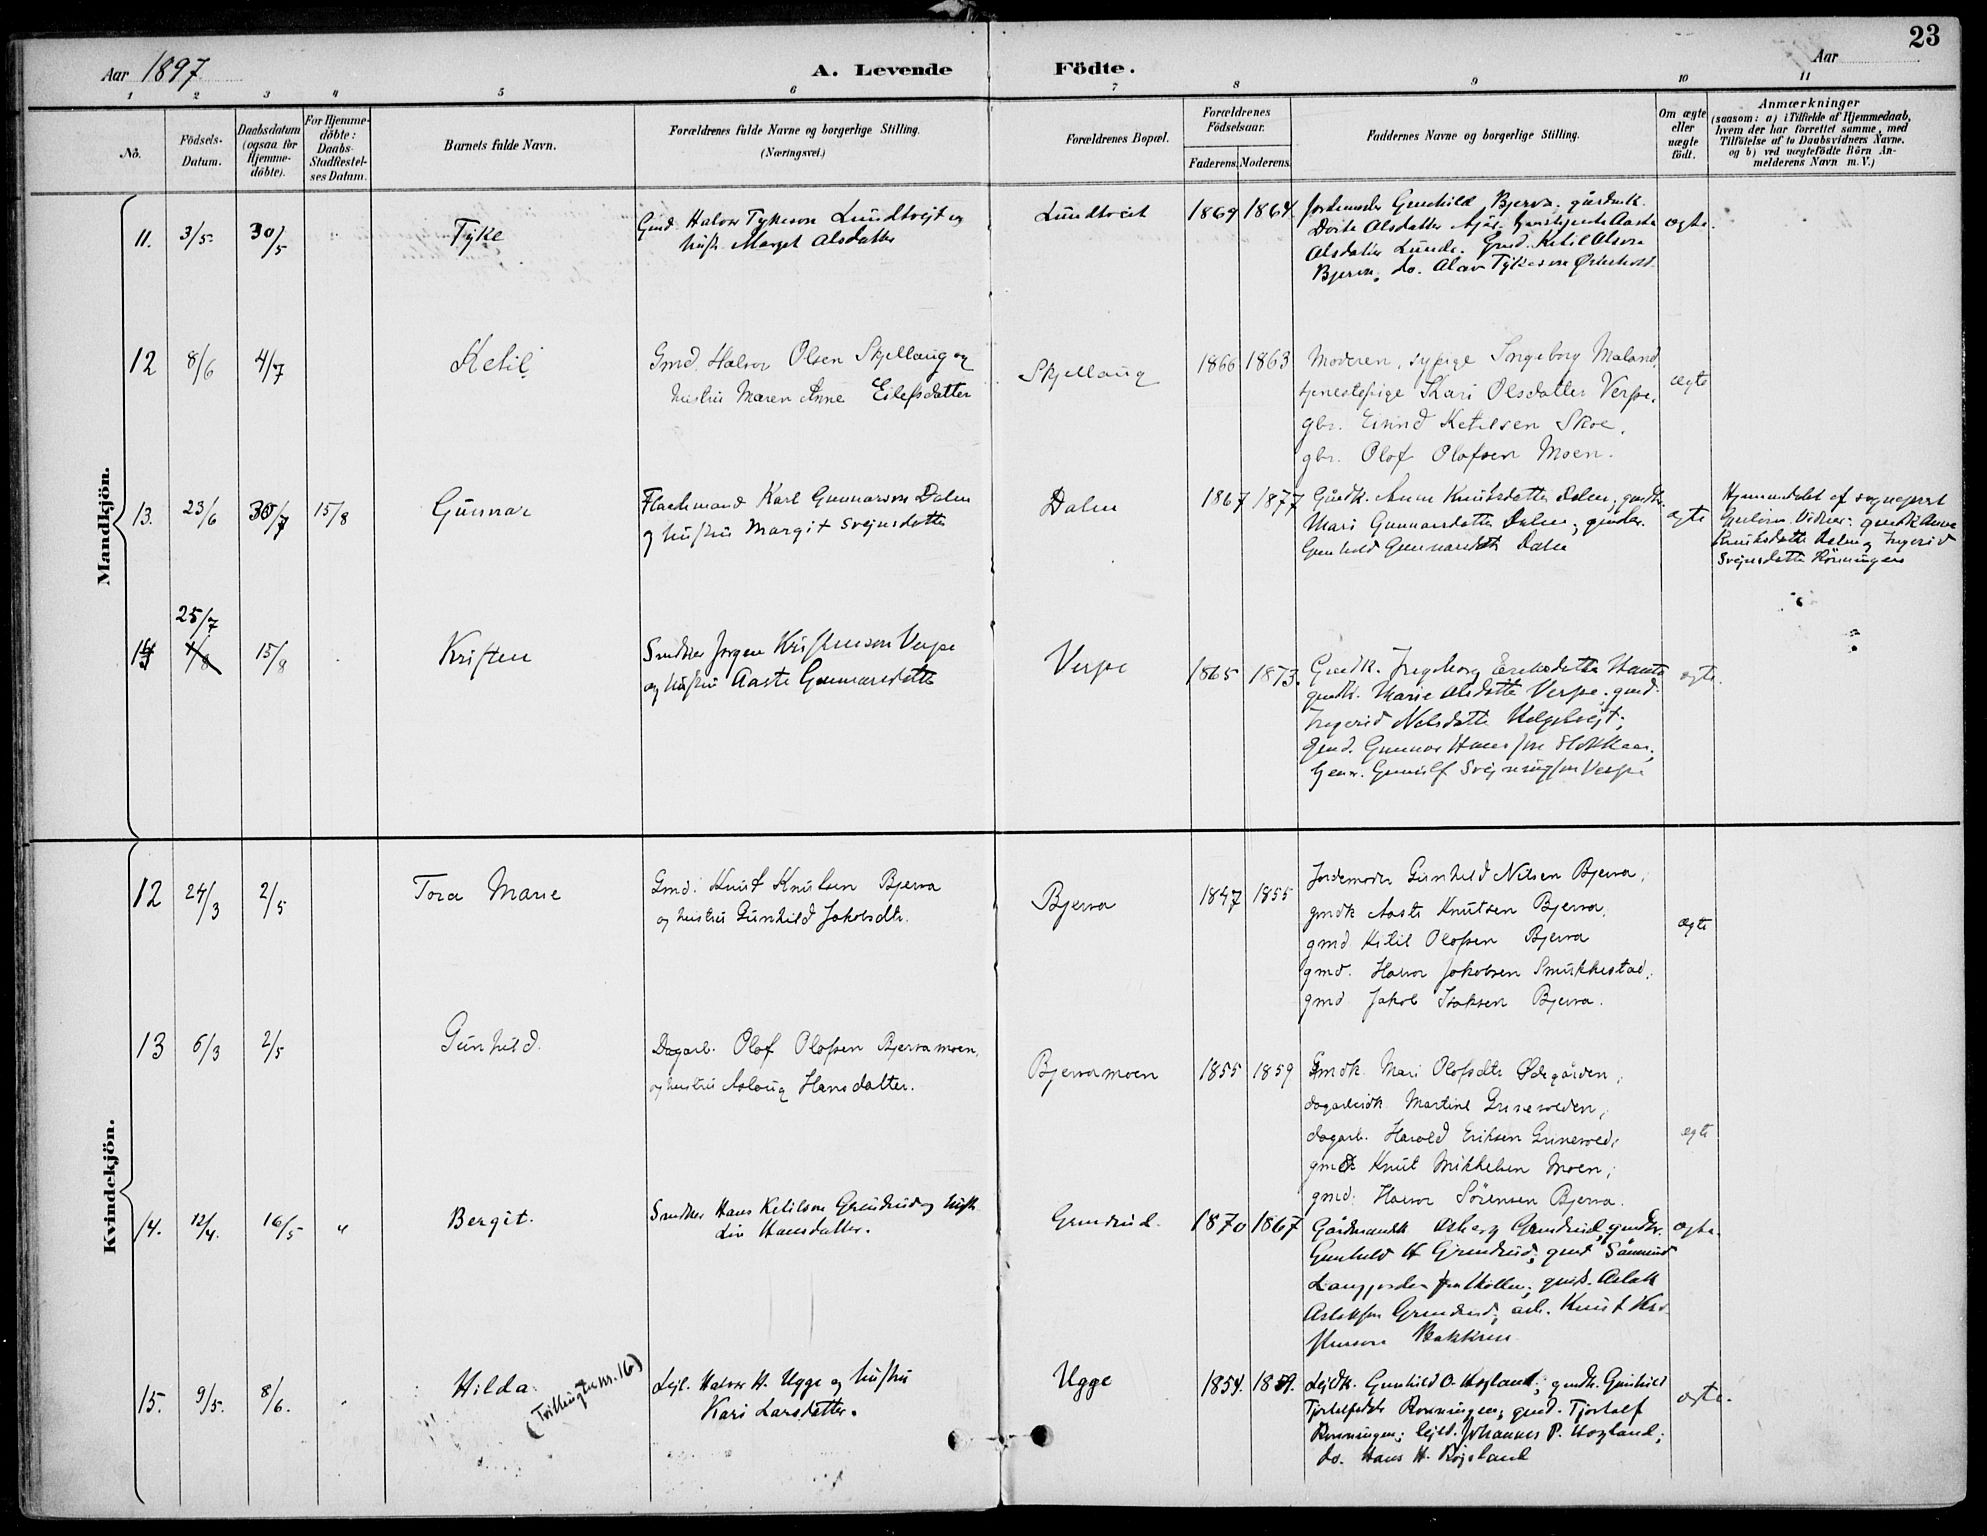 23
Aar 1897
A. Levende Födte.
Aar
1 2 3 4 5 6 7 8 9 10 11
No.
Födsels-Datum.
Daabsdatum (ogsaa for Hjemme-döbte).
For Hjemme-döbte: Daabs-Stadfæstel-ses Datum.
Barnets fulde Navn.
Forældrenes fulde Navne og borgerlige Stilling.
(Næringsvei.)
Forældrenes Bopæl.
Forældrenes Födselsaar.
Faderens. Moderens.
Faddernes Navne og borgerlige Stilling.
Om ægte eller uægte födt.
Anmærkninger
(saasom: a) i Tilfælde af Hjemmedaab,
hvem der har forrettet samme, med
Tilföielse af to Daabsvidners Navne.
og b) ved uægtefödte Börn An-
melderens Navn m. V.)
Mandkjön.
11. 3/5 30/5 Tjke
Gmd. Halvor Tykeson Lundtvejt og
hustr. Marget Alsdatter
Lundtveit
1869 1864.
Jordemoder Gunhild Bjerva, gårdmk.
Dorte Alsdatter
Alsdatter Lunde. Gmd. Ketil Alson
Bjerva, do. Alav Tykeson
ægte.
12 8/6 4/7 Ketil
Gmd. Halvor Olsen Skjellaug og
hustru Maren Anne Eilefsdatter
Skjellaug
1866 1863
Moderen, sypige Ingeborg Maland,
tjenestepige Kari Olsdatter Verpe,
gbr. Eivind Ketilsen Skoe,
gbr. Olof Olofsen Moen.
ægte
13. 23/6 30/7 15/8 Gunnar
Flaathmand Karl Gunnarson Dalen
og hustru Margit Svejnsdatter
Dalen
1867 1877
Gårdk. Anne Knutsdatter Dalen, gmdk.
Mari Gunnarsdatter Dalen; gmdtr.
Gunhild Gunnarsdatter Dalen
ægte
Hjemmedøbt af sogneprest
Vidner: gmdk Anne
Knutsdatter Dalen og Ingerid
Svejnsdatter Rönningen
25/7
14 1/8 15/8 Kristen
Snedker Jørgen Kristenson Verpe
og hustru Aaste Gunnarsdatter
Verpe
1865 1873.
Gmdk. Ingeborg Eriksdatter
gmdk. Marie Alsdatter Verpe, gmd.
Ingerid Nilsdatter Helgetvejt;
gmd. Gunnar Hansson
Gunnulf Svejnungson Verpe
ægte.
Kvindekjön.
12 24/3 2/5 Tora Marie
Gmd. Knut Knutsen Bjerva
og hustru Gunhild Jakobsdtr.
Bjerva
1847 1855
Jordemoder Gunhild Nilsen Bjerva,
gmdk Aaste Knutsen Bjerva,
gmd Kitil Olofsen Bjerva
gmd. Halvor Jakobsen Smukkestad,
gmd. Jakob Isaksen Bjerva.
ægte
13 6/3 2/5 Gunhild.
Dagarb. Olof Olofsen Bjervamoen,
og hustru Aslaug Hansdatter.
Bjervamoen
1855 1859
Gmdk. Mari Olofsdtr Ødegården,
dagarbeidk. Martine Grinevolden,
dagarb. Harald Eriksen Grinevold,
gmd Knut Mikkelsen Moen,
gmd. Halvor Sörensen Bjerva.
ægte
14. 12/4. 16/5 " Bergit.
Snedker Hans Ketilson Grundrud og hustr.
Liv Hansdatter.
Grundrud.
1870 1867
Gårdmandk Grundrud, gmdtr.
Gunhild H Grundrud; gmd Såmund
gmd. Aslak
Aslakson Grundrud; arb. Knut
Bakken
ægte.
15. 9/5. 8/6. Hilda.
(Tvilling til nr. 16)
Lejl. Halvor H. Ugge og hustru
Kari Larsdatter.
Ugge
1854. 1859.
Lejlk. Gunhild O. Hogland; gmdk. Gunhild
Rönningen; gmd. Tjostolf
Rönningen; lejl. Johannes P. Hogland;
do. Hans H.
ægte.